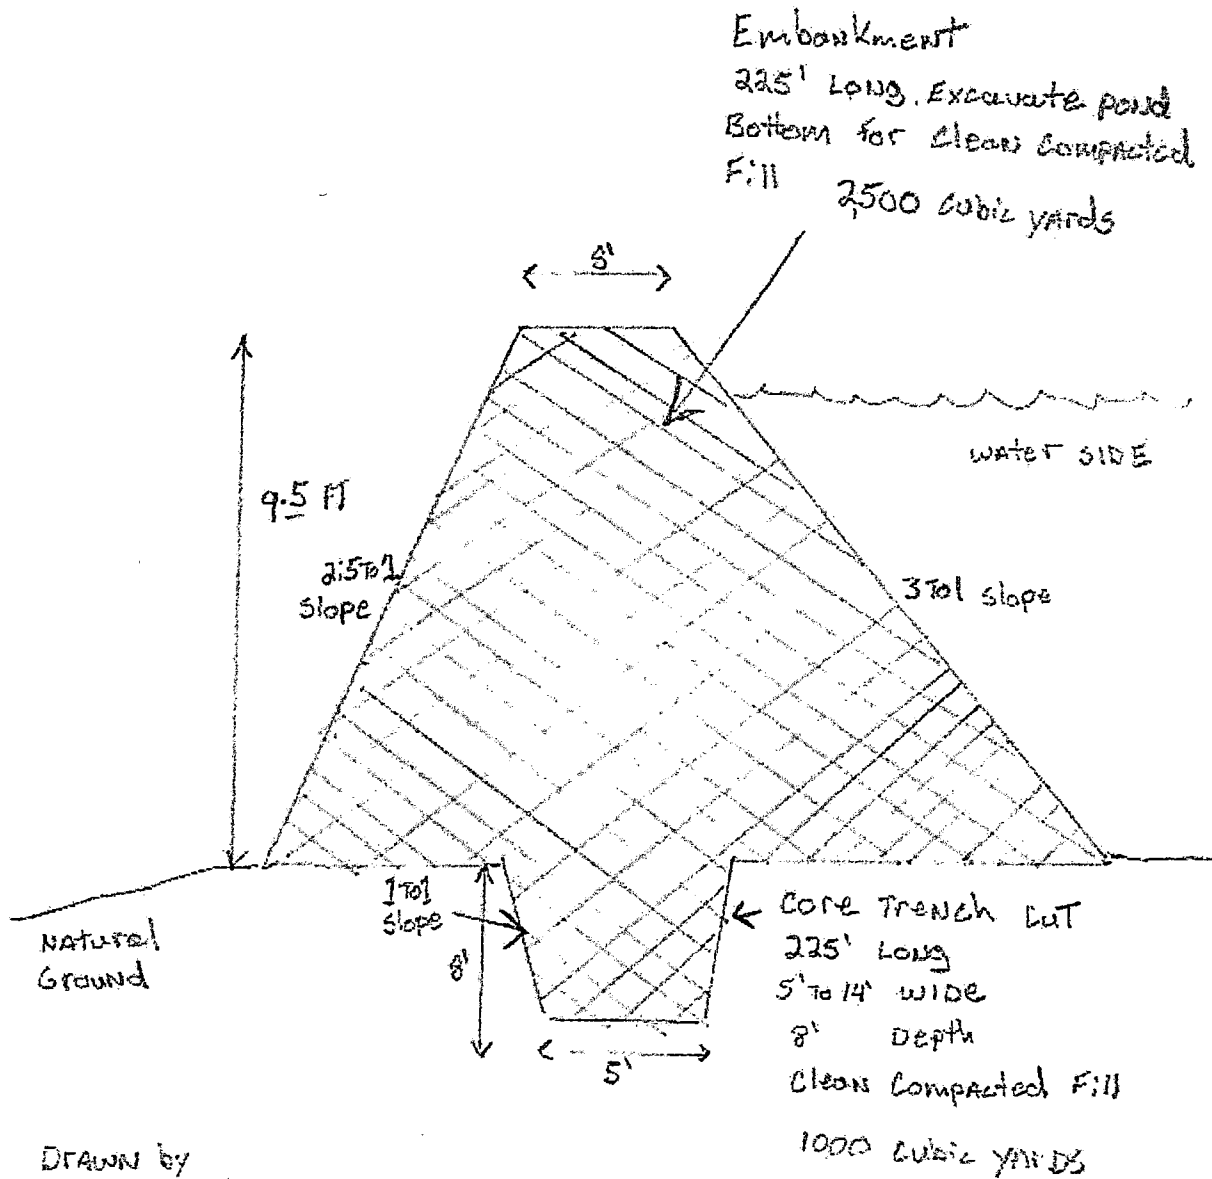 Embankment
225' Long. Excavate pond
Bottom for Clean Compacted
Fill
2,500 cubic yards
8'
9.5 FT
water SIDE
2.5 To 1
Slope
3 To 1 slope
1 To 1
Slope
8'
5'
NATural
Ground
Core Trench CuT
225' Long
5' To 14' WIDE
8' Depth
Clean Compacted Fill
1000 cubic yARDS
DrAWN by